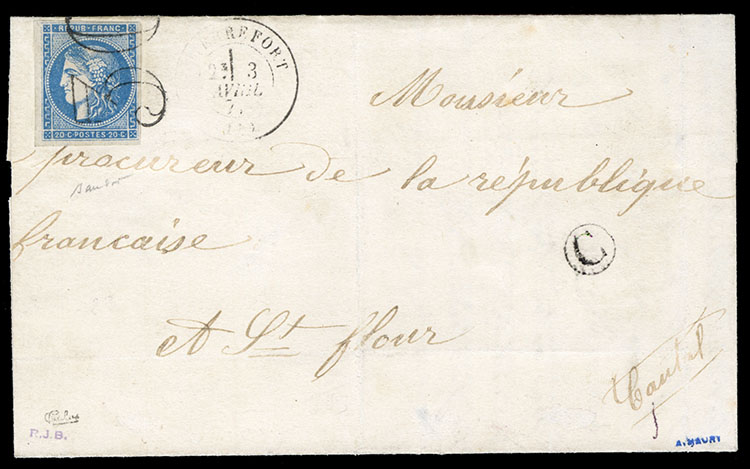 REPUB · FRANC ·
20 C · POSTES · 20 C
REFORT
3
AVRIL
Monsieur
procureur de la république
francaise
C
A St flour
Cantal
R.J.B.
A. MAURY